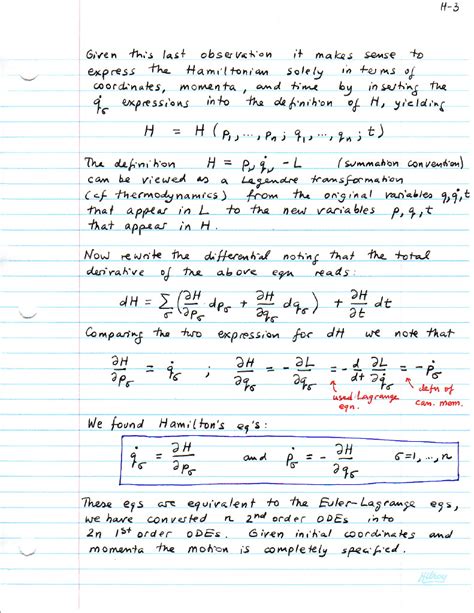 H-3
Given this last observation it makes sense to
express the Hamiltonian solely in terms of
coordinates, momenta, and time by inserting the
q̇_σ expressions into the definition of H, yielding
H = H (p₁, ..., pₙ; q₁, ..., qₙ; t)
The definition H = p_ν q̇_ν - L (summation convention)
can be viewed as a Legendre transformation
(cf thermodynamics) from the original variables q, q̇, t
that appear in L to the new variables p, q, t
that appear in H.
Now rewrite the differential noting that the total
derivative of the above eqn reads:
dH = Σ_σ (∂H/∂p_σ dp_σ + ∂H/∂q_σ dq_σ) + ∂H/∂t dt
Comparing the two expression for dH we note that
∂H/∂p_σ = q̇_σ ; ∂H/∂q_σ = -∂L/∂q_σ = -d/dt ∂L/∂q̇_σ = -ṗ_σ
used Lagrange eqn.
defn of can. mom.
We found Hamilton's eq's:
q̇_σ = ∂H/∂p_σ and ṗ_σ = - ∂H/∂q_σ σ=1, ..., n
These eqs are equivalent to the Euler-Lagrange eqs,
we have converted n 2nd order ODEs into
2n 1st order ODEs. Given initial coordinates and
momenta the motion is completely specified.
Hilroy